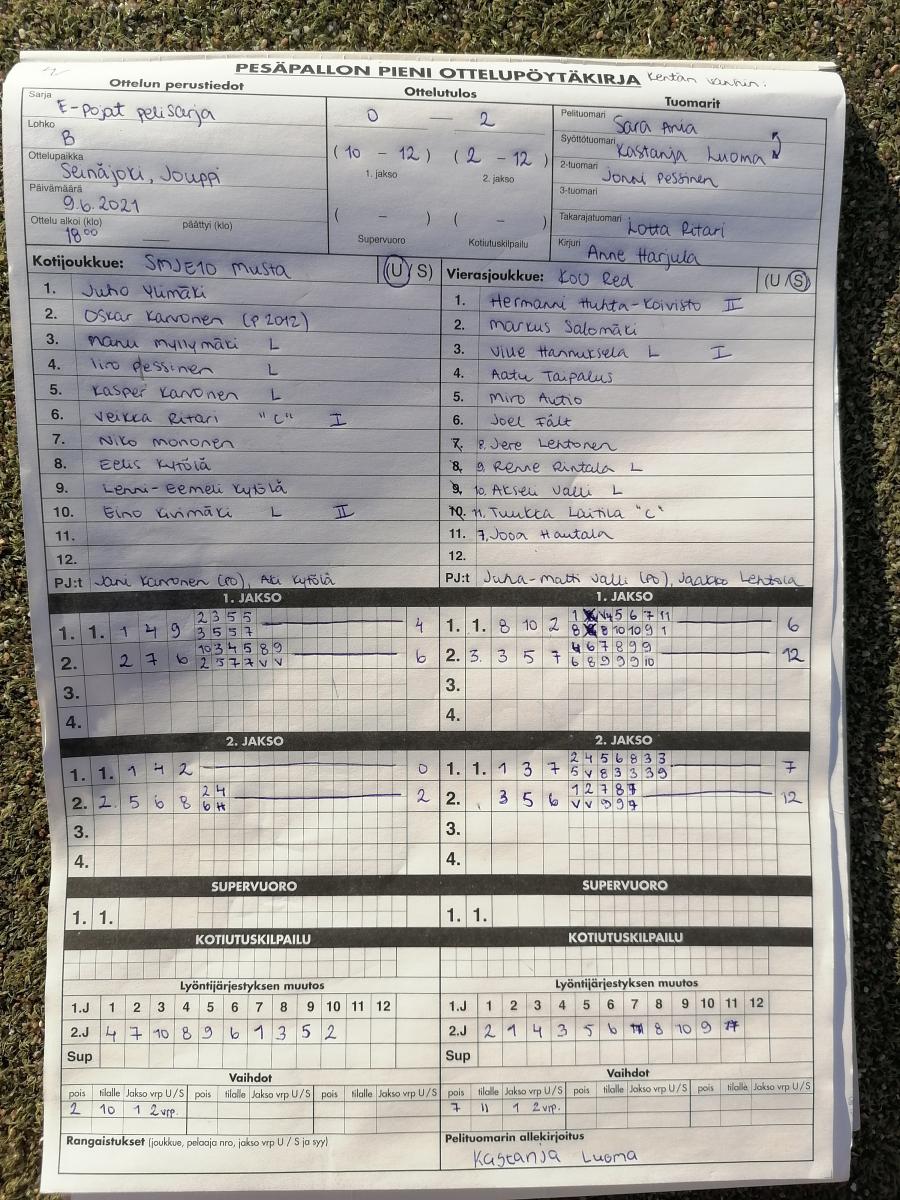 PESÄPALLON PIENI OTTELUPÖYTÄKIRJA Kentän vanhin:
Ottelun perustiedot
Sarja
E-pojat pelisarja
Lohko
B
Ottelupaikka
Seinäjoki, Jouppi
Päivämäärä
9.6.2021
Ottelu alkoi (klo) päättyi (klo)
18⁰⁰
Ottelutulos
0 — 2
(10 - 12) (2 - 12)
1. jakso 2. jakso
( - ) ( - )
Supervuoro Kotiutuskilpailu
Tuomarit
Pelituomari
Sara Ania
Syöttötuomari
Kastanja Luoma
2-tuomari
Jonni Pessinen
3-tuomari
Takarajatuomari
Lotta Ritari
Kirjuri
Anne Harjula
Kotijoukkue: SMJE10 Musta (U/S)
1. Juho Ylimäki
2. Oskar Karvonen (P2012)
3. Manu Myllymäki L
4. Iiro Pessinen L
5. Kasper Karvonen L
6. Veikka Ritari "C" I
7. Niko Mononen
8. Eelis Kytölä
9. Lenni-Eemeli Kytölä
10. Eino Kivimäki L II
11.
12.
PJ:t Jani Karvonen (PJ), Aki Kytölä
Vierasjoukkue: KoU Red (U/S)
1. Hermanni Huhta-Koivisto II
2. Markus Salomäki
3. Ville Hannuksela L I
4. Aatu Taipalus
5. Miro Autio
6. Joel Fält
7. 8. Jere Lehtonen
8. 9. Renne Rintala L
9. 10. Akseli Valli L
10. 11. Tuukka Laitila "C"
11. 7. Jooa Hautala
12.
PJ:t Juha-Matti Valli (PJ), Jaakko Lehtola
1. JAKSO
2 3 5 5
1. 1. 1 4 9 4
3 5 5 7
10 3 4 5 8 9
2. 2 7 6 6
2 5 7 7 V V
3.
4.
1. JAKSO
5 6 7 11
1. 1. 8 10 2 6
8 8 10 10 9 1
6 7 8 9 9
2. 3. 3 5 7 12
6 8 9 9 9 10
3.
4.
2. JAKSO
1. 1. 1 4 2 0
2 4
2. 2. 5 6 8 2
6
3.
4.
2. JAKSO
2 4 5 6 8 3 3
1. 1. 1 3 7 7
5 V 8 3 3 3 9
1 2 7 8 7
2. 3 5 6 12
V V 9 9 7
3.
4.
SUPERVUORO
1. 1.
SUPERVUORO
1. 1.
KOTIUTUSKILPAILU
KOTIUTUSKILPAILU
Lyöntijärjestyksen muutos
1.J 1 2 3 4 5 6 7 8 9 10 11 12
2.J 4 7 10 8 9 6 1 3 5 2
Sup
Lyöntijärjestyksen muutos
1.J 1 2 3 4 5 6 7 8 9 10 11 12
2.J 2 1 4 3 5 6 8 10 9
Sup
Vaihdot
pois tilalle Jakso vrp U/S pois tilalle Jakso vrp U/S pois tilalle Jakso vrp U/S
2 10 1 2vrp.
Vaihdot
pois tilalle Jakso vrp U/S pois tilalle Jakso vrp U/S pois tilalle Jakso vrp U/S
7 11 1 2vrp.
Rangaistukset (joukkue, pelaaja nro, jakso vrp U / S ja syy)
Pelituomarin allekirjoitus
Kastanja Luoma